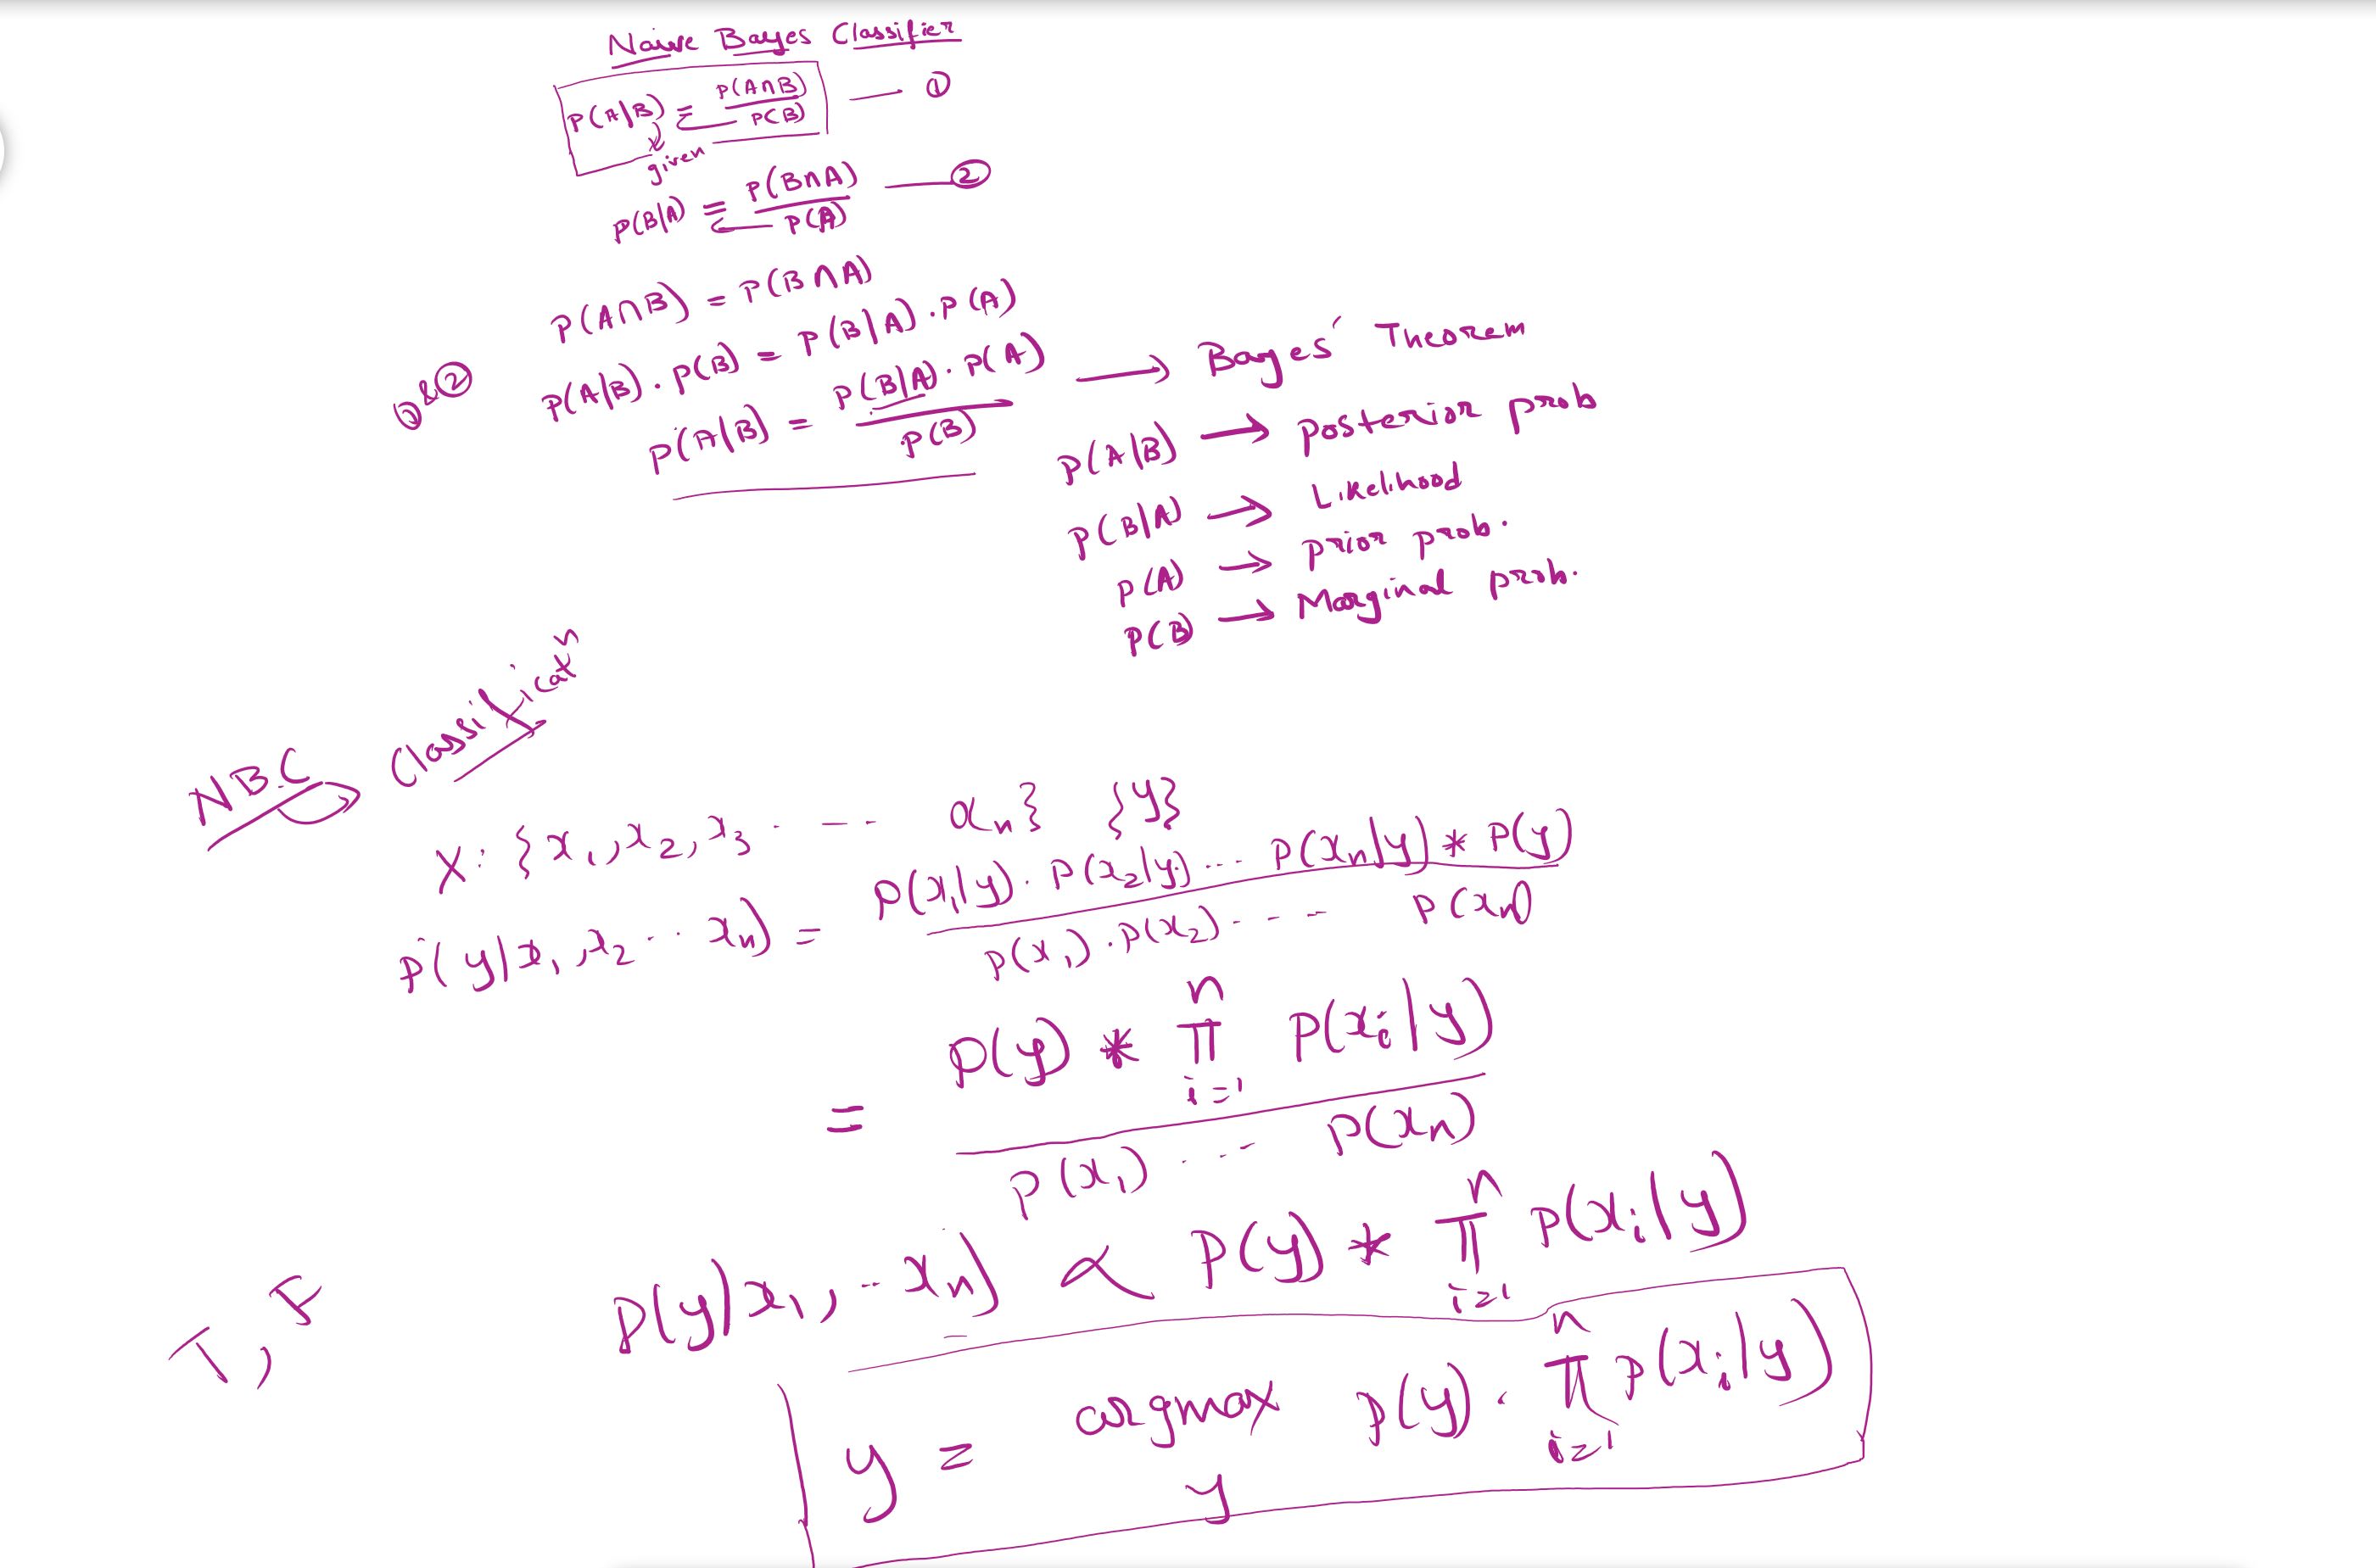 Naive Bayes Classifier
P(A|B) = P(A∩B) / P(B) — ①
given
P(B|A) = P(B∩A) / P(A) — ②
P(A∩B) = P(B∩A)
①&② P(A|B) . P(B) = P(B|A) . P(A)
P(A|B) = P(B|A) . P(A) / P(B) → Bayes' Theorem
P(A|B) → Posterior prob
P(B|A) → Likelihood
P(A) → prior prob.
P(B) → Marginal prob.
NBC → Classificatⁿ
X: {x₁, x₂, x₃ . --- xₙ} {y}
P(y|x₁, x₂ .. xₙ) = P(x₁|y) . P(x₂|y) ... P(xₙ|y) * P(y) / P(x₁) . P(x₂) ---- P(xₙ)
= P(y) * n Π i=1 P(xᵢ|y) / P(x₁) .... P(xₙ)
P(y|x₁, .. xₙ) ∝ P(y) * n Π i=1 P(xᵢ|y)
T, F
y = argmax y P(y) . n Π i=1 P(xᵢ|y)